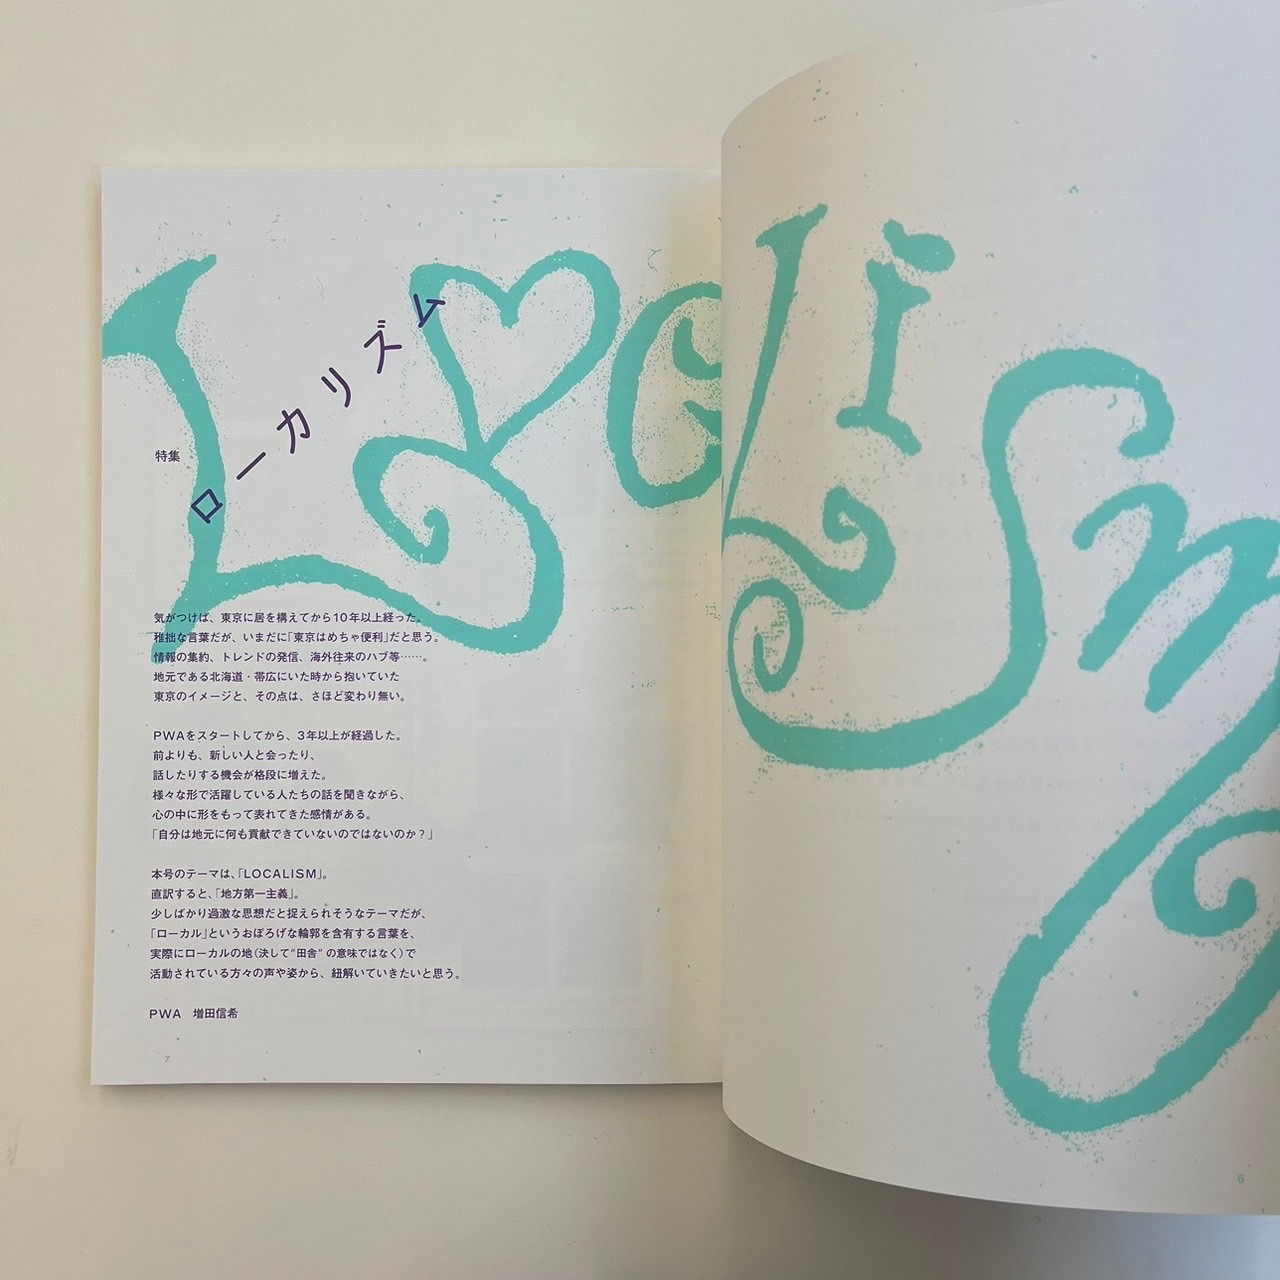 LOCaLiSm
特集
ローカリズム
気がつけば、東京に居を構えてから10年以上経った。
稚拙な言葉だが、いまだに「東京はめちゃ便利」だと思う。
情報の集約、トレンドの発信、海外往来のハブ等……。
地元である北海道・帯広にいた時から抱いていた
東京のイメージと、その点は、さほど変わり無い。
PWAをスタートしてから、3年以上が経過した。
前よりも、新しい人と会ったり、
話したりする機会が格段に増えた。
様々な形で活躍している人たちの話を聞きながら、
心の中に形をもって表れてきた感情がある。
「自分は地元に何も貢献できていないのではないのか？」
本号のテーマは、「LOCALISM」。
直訳すると、「地方第一主義」。
少しばかり過激な思想だと捉えられそうなテーマだが、
「ローカル」というおぼろげな輪郭を含有する言葉を、
実際にローカルの地（決して“田舎”の意味ではなく）で
活動されている方々の声や姿から、紐解いていきたいと思う。
PWA 増田信希
7
6